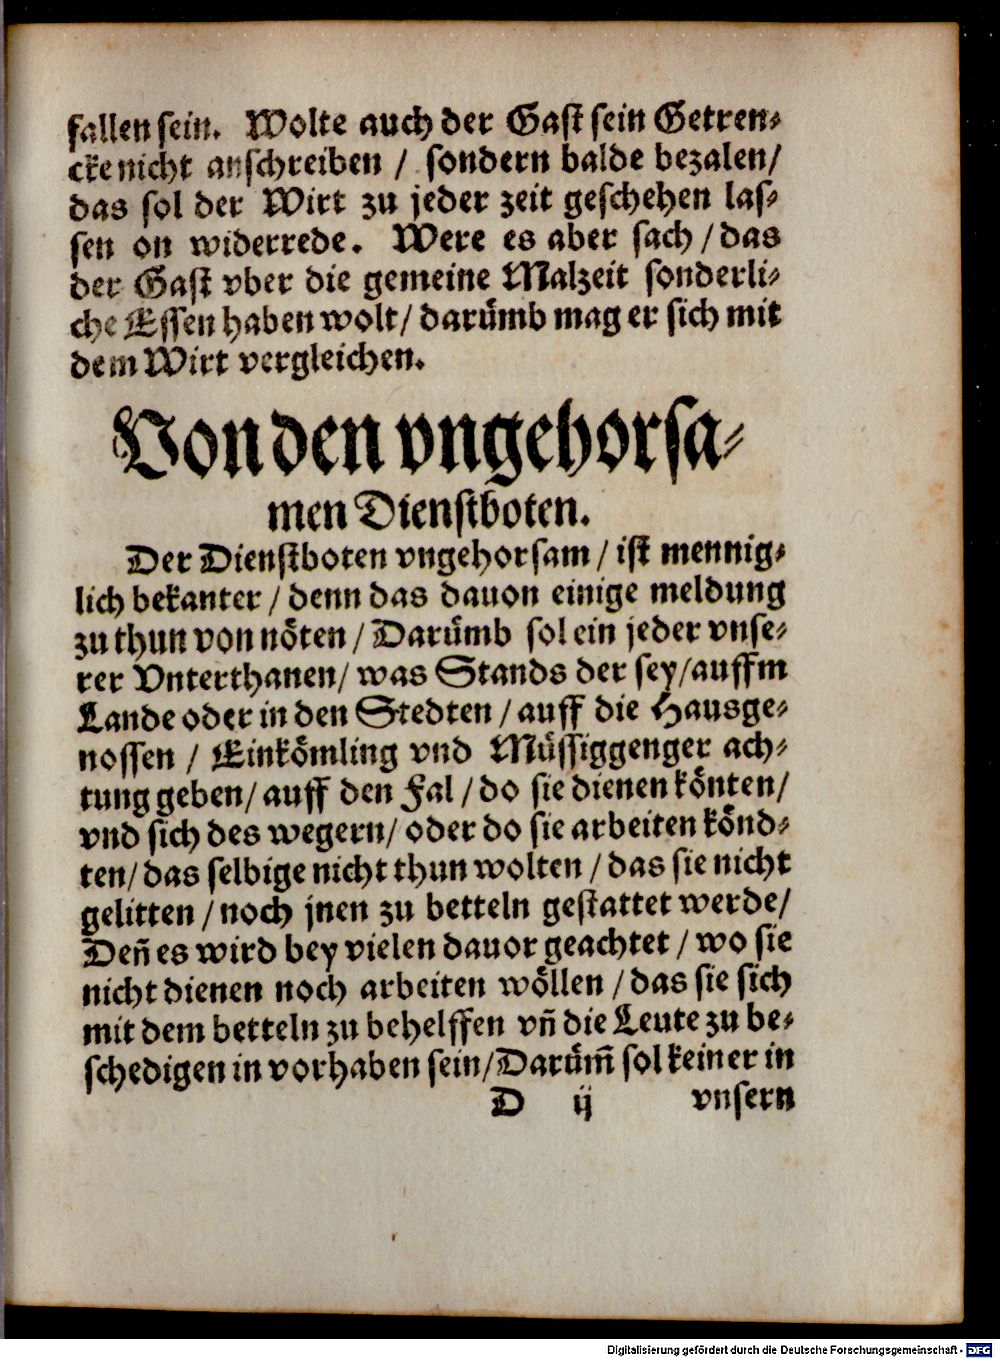 fallen sein. Wolte auch der Gast sein Getren-
cke nicht anschreiben / sondern balde bezalen/
das sol der Wirt zu jeder zeit geschehen las-
sen on widerrede. Were es aber sach / das
der Gast vber die gemeine Malzeit sonderli-
che Essen haben wolt / darümb mag er sich mit
dem Wirt vergleichen.
Von den vngehorsa-
men Dienstboten.
Der Dienstboten vngehorsam / ist mennig-
lich bekanter / denn das dauon einige meldung
zu thun von nöten / Darümb sol ein jeder vnse-
rer Vnterthanen / was Stands der sey / auffm
Lande oder in den Stedten / auff die Hausge-
nossen / Einkömling vnd Müssiggenger ach-
tung geben / auff den Fal / do sie dienen könten /
vnd sich des wegern / oder do sie arbeiten könd-
ten / das selbige nicht thun wolten / das sie nicht
gelitten / noch jnen zu betteln gestattet werde /
Deñ es wird bey vielen dauor geachtet / wo sie
nicht dienen noch arbeiten wöllen / das sie sich
mit dem betteln zu behelffen vñ die Leute zu be-
schedigen in vorhaben sein / Darüm̃ sol keiner in
D ij vnsern
Digitalisierung gefördert durch die Deutsche Forschungsgemeinschaft - DFG